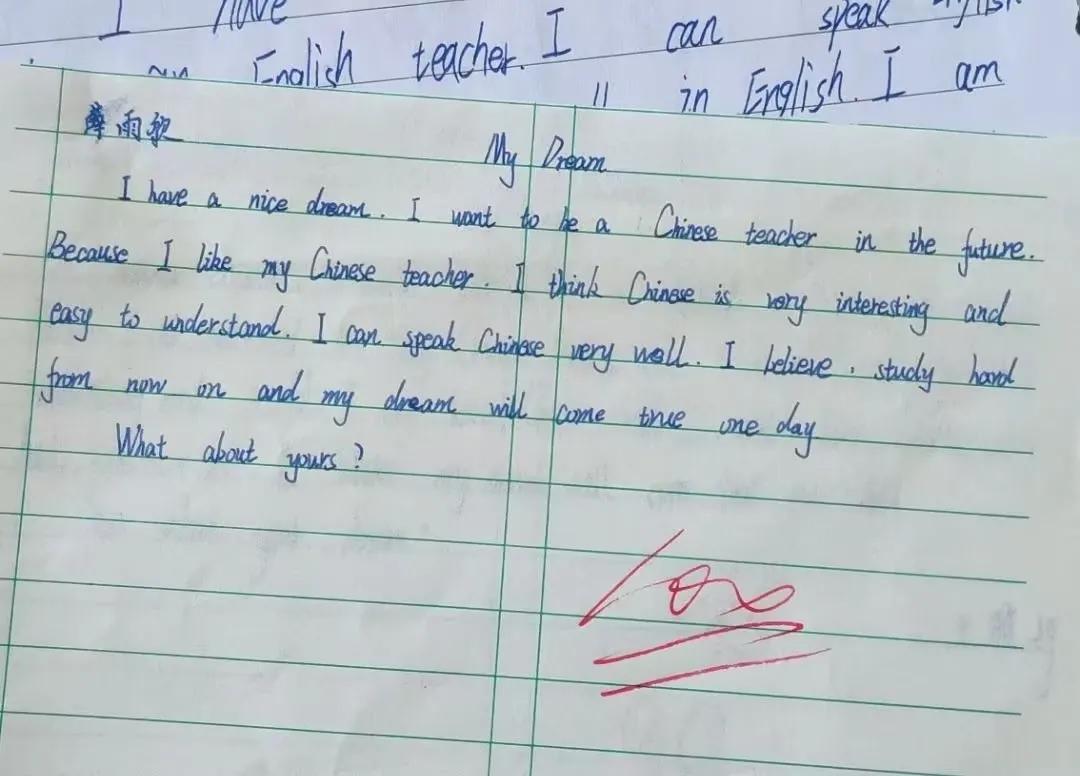 I have
English teacher. I can speak
in English. I am
雨
My Dream
I have a nice dream. I want to be a Chinese teacher in the future.
Because I like my Chinese teacher. I think Chinese is very interesting and
easy to understand. I can speak Chinese very well. I believe, study hard
from now on and my dream will come true one day
What about yours?
100